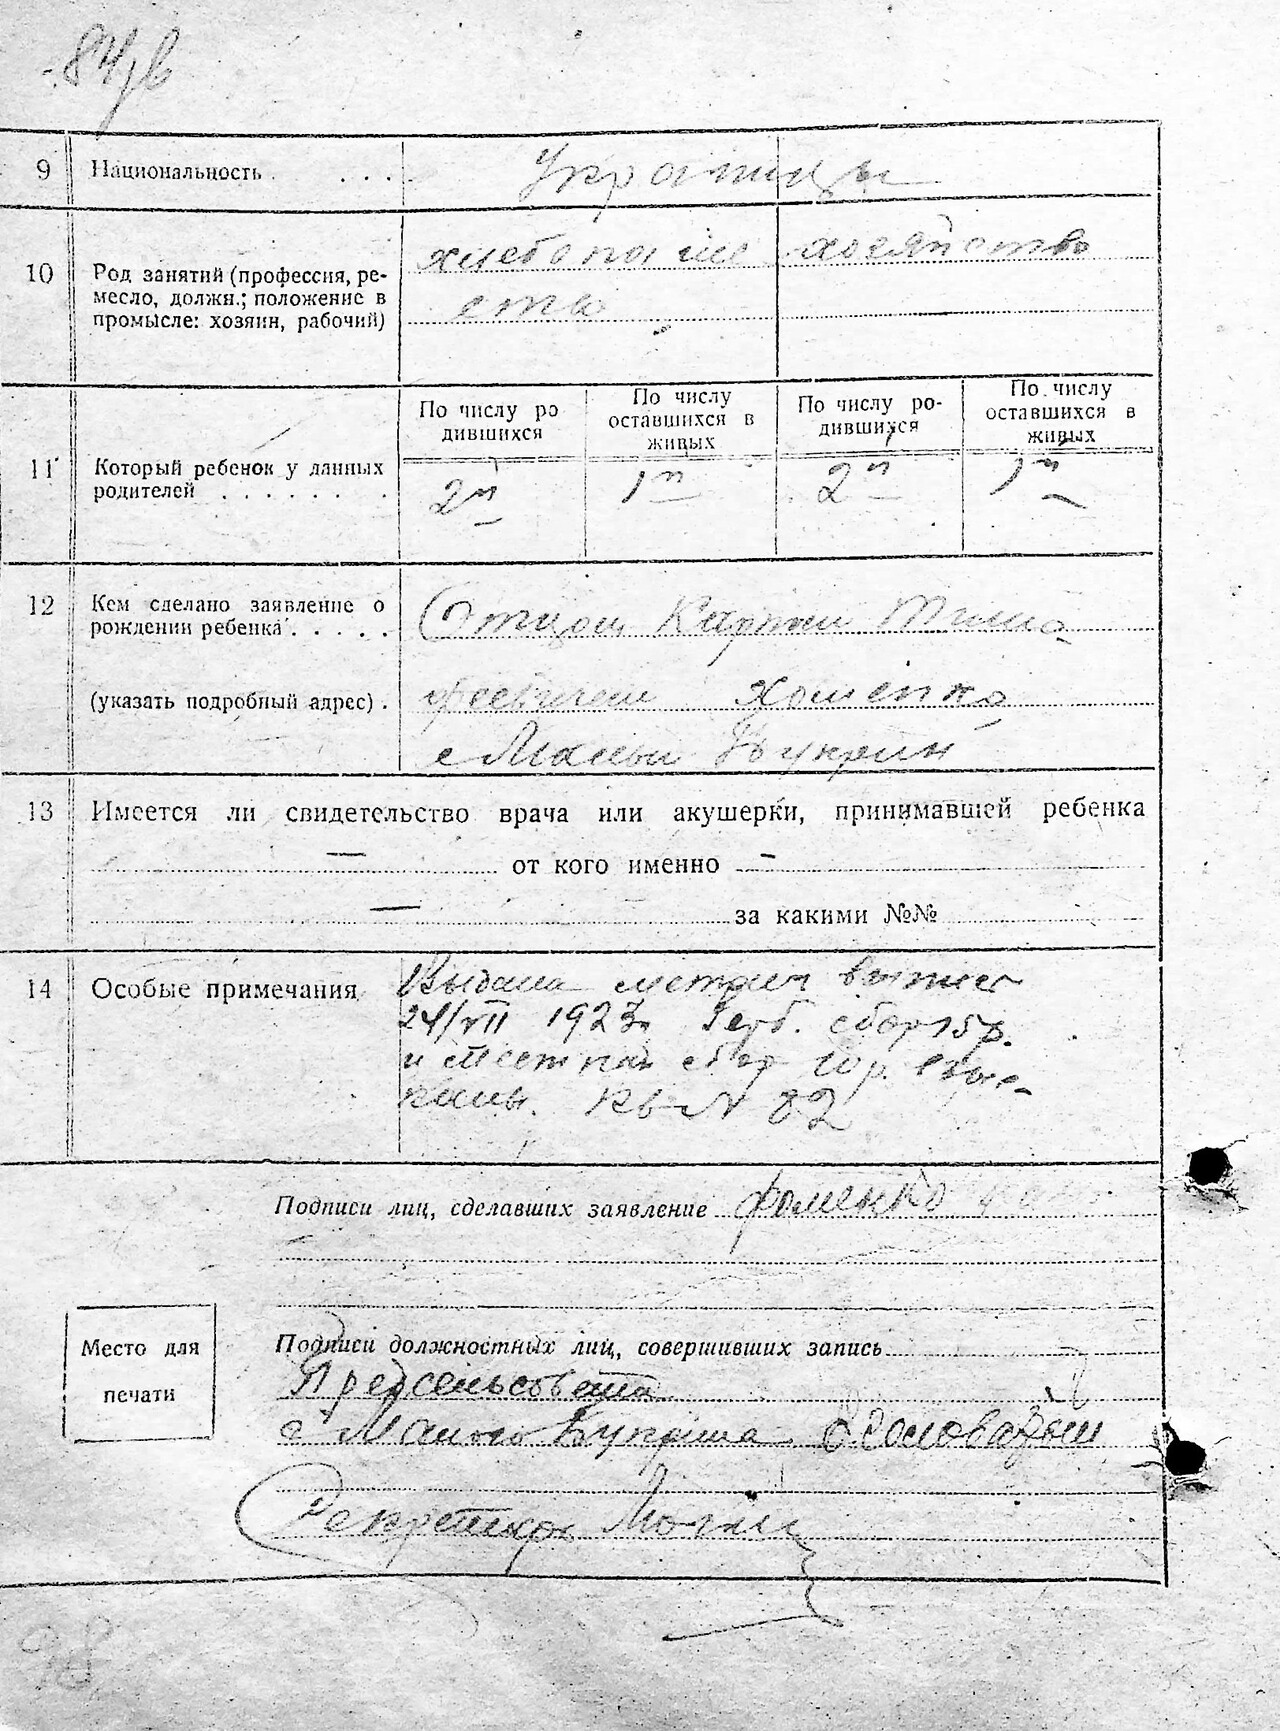 9 Национальность . . . . Украинцы
10 Род занятий (профессия, ре-
месло, должн.; положение в
промысле: хозяин, рабочий)
хлебопаше хозяйство
ство
По числу ро
дившихся
По числу
оставшихся в
живых
По числу ро-
дившихся
По числу
оставшихся в
живых
11 Который ребенок у данных
родителей . . . . . . .
2й 1й 2й 1й
12 Кем сделано заявление о
рождении ребенка . . . . .
(указать подробный адрес) .
Отцом Карпом Тимо
феевичем Хоменко
с Малый Букрин
13 Имеется ли свидетельство врача или акушерки, принимавшей ребенка
— от кого именно —
— за какими №№
14 Особые примечания
Выдана метрич выпис
24/VII 1923 Герб. сбор 15р.
и местный сбор 10р. взыс-
каны. Кв N 82
Подписи лиц, сделавших заявление Фоменко
Место для
печати
Подписи должностных лиц, совершивших запись
Предсельсовета
с Малого Букрина
Секретарь